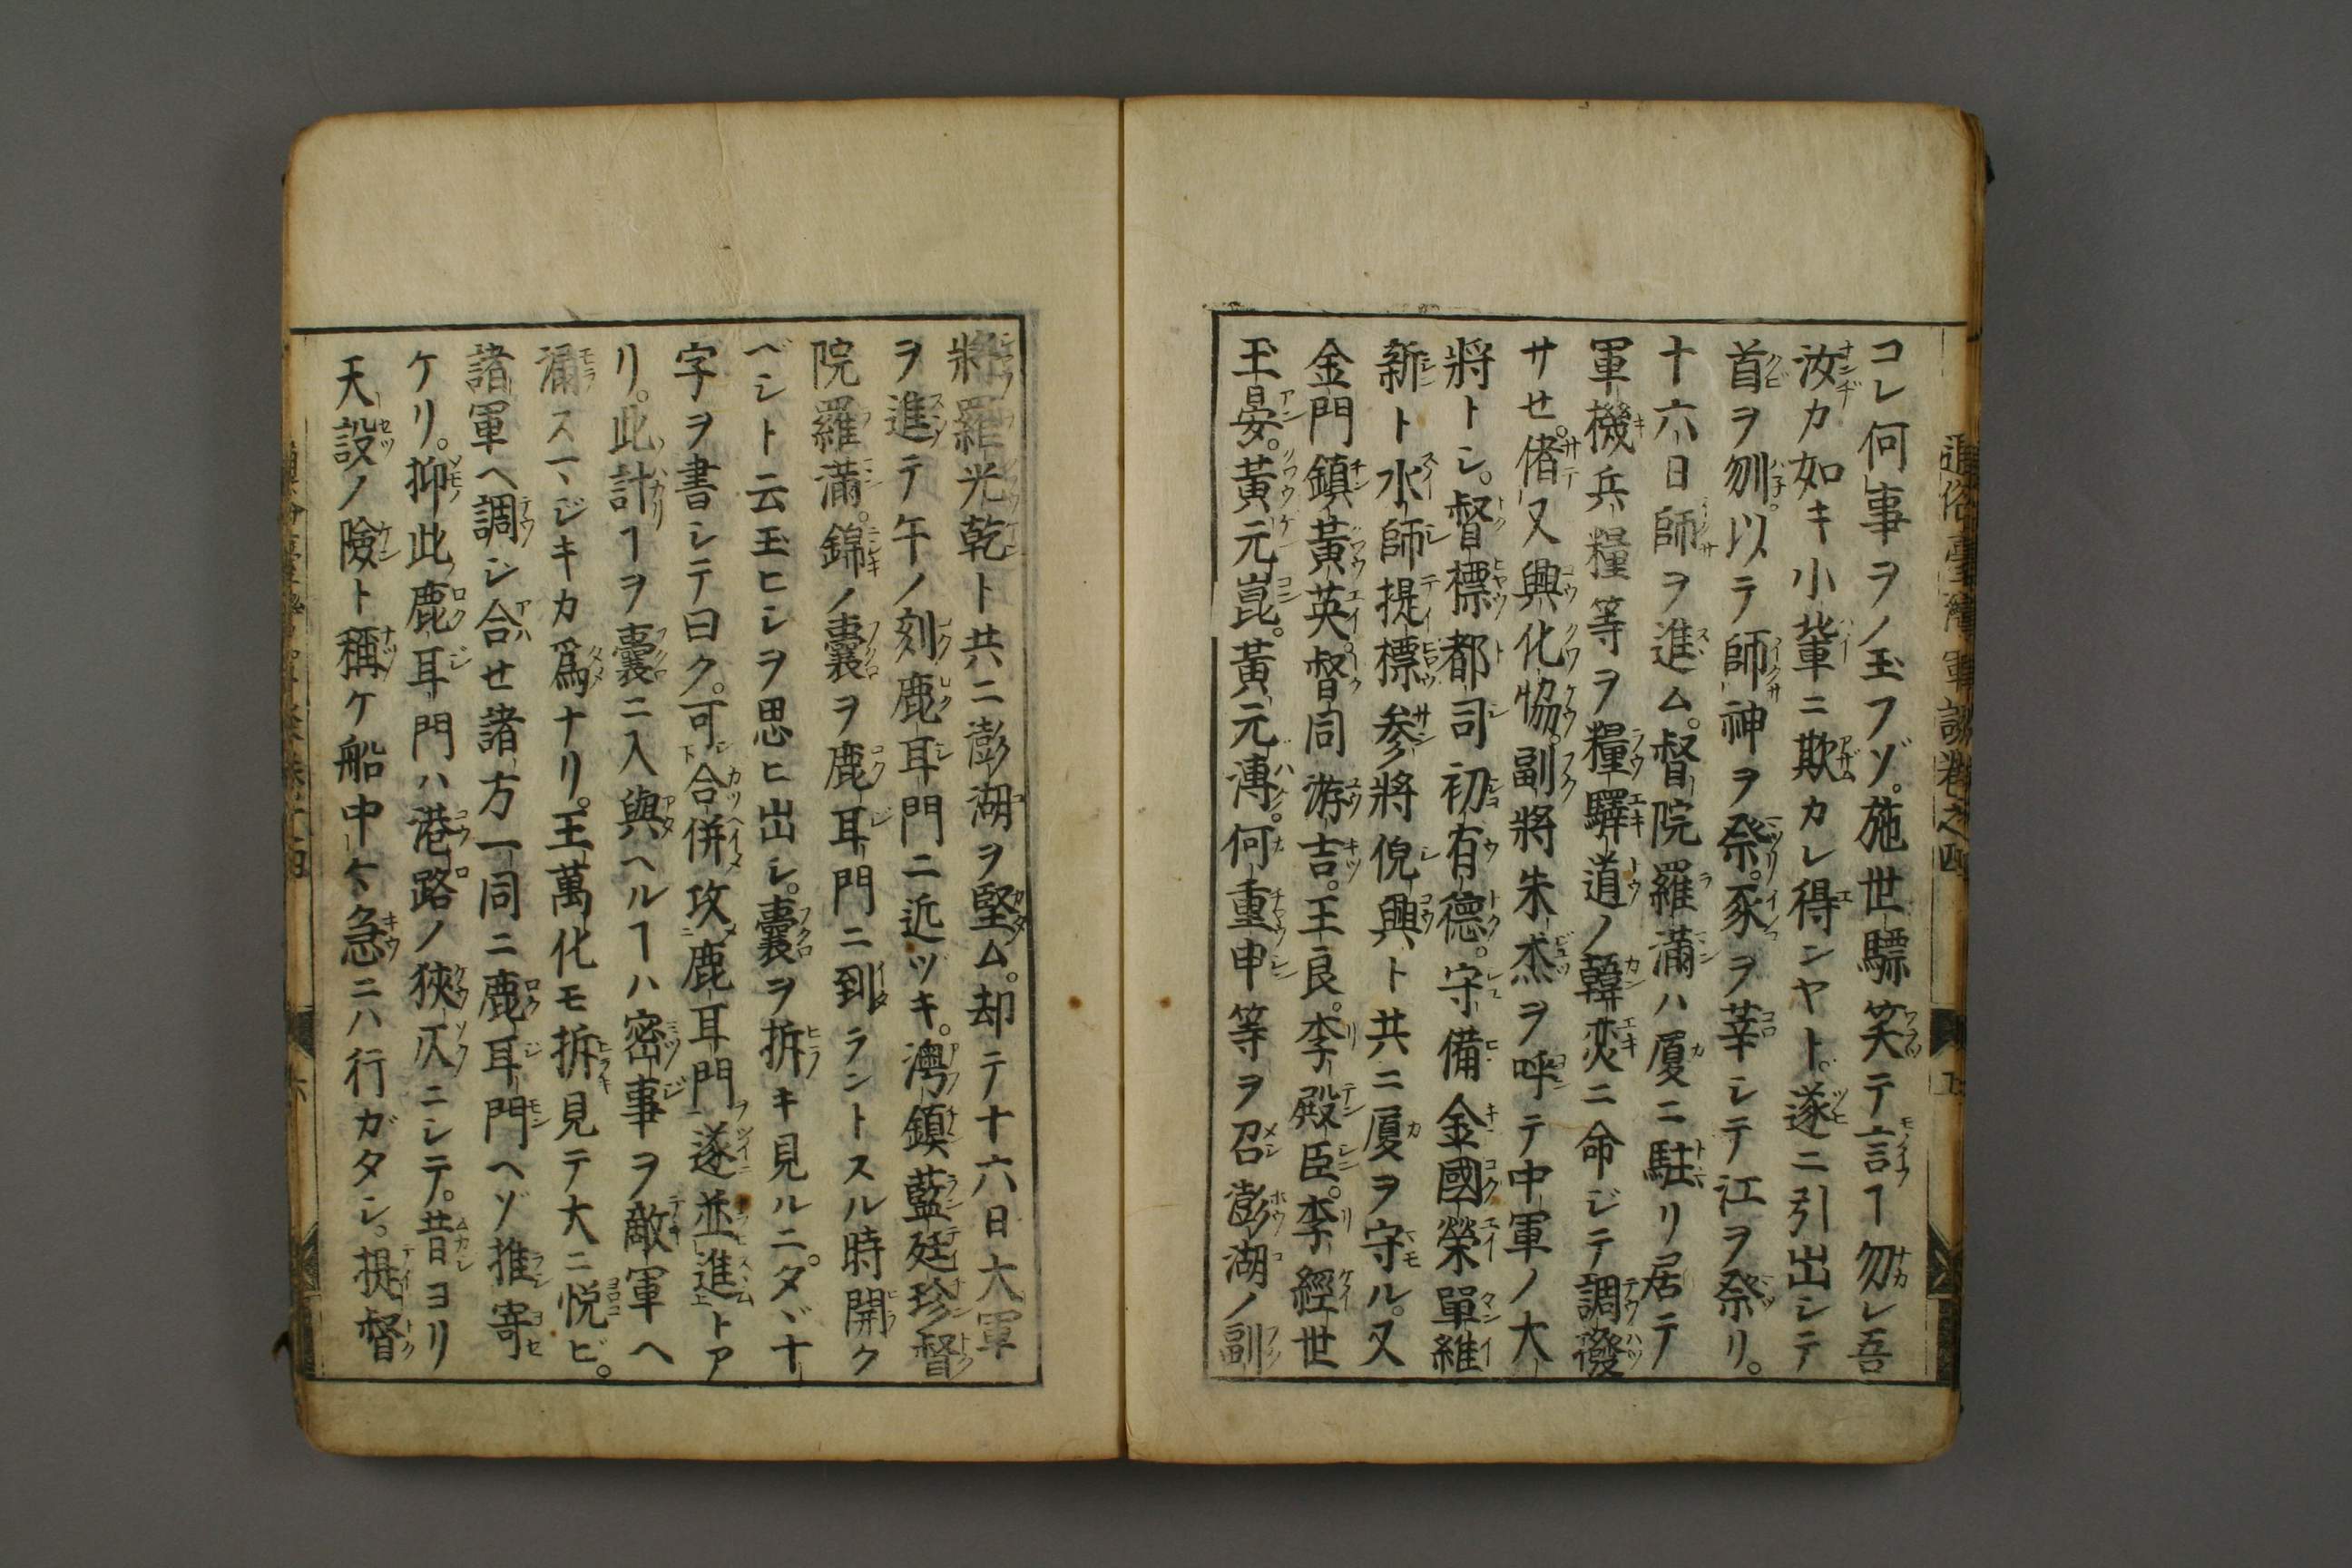 通俗臺灣軍談卷之四
コレ何事ヲノ玉フゾ。施世驃笑テ言ヿ勿レ吾
汝カ如キ小輩ニ欺カレ得ンヤト。遂ニ引出シテ
首ヲ刎。以テ師神ヲ祭。豕ヲ宰シテ江ヲ祭リ。
十六日師ヲ進ム。督院羅滿ハ厦ニ駐リ居テ
軍機兵糧等ヲ糧驛道ノ韓奕ニ命ジテ調發
サセ。偖又興化協。副將朱杰ヲ呼テ中軍ノ大
將トシ。督標都司初有德。守備金國榮單維
新ト水師提標參將倪興ト共ニ厦ヲ守ル。又
金門鎮黃英。督同游吉。王良。李殿臣。李經世
王晏。黃元崑。黃元漙。何重申等ヲ召澎湖ノ副
將羅光乾ト共ニ澎湖ヲ堅ム。却テ十六日大軍
ヲ進テ午ノ刻鹿耳門ニ近ヅキ。澚鎮藍廷珍督
院羅滿。錦ノ囊ヲ鹿耳門ニ到ラントスル時開ク
ベシト云玉ヒシヲ思ヒ出シ。囊ヲ拆キ見ルニ。タヾ十
字ヲ書シテ曰ク。可合併攻鹿耳門遂並進トア
リ。此計ヿヲ囊ニ入與ヘルヿハ密事ヲ敵軍ヘ
漏スマジキカ爲ナリ。王萬化モ拆見テ大ニ悦ビ。
諸軍ヘ調シ合セ諸方一同ニ鹿耳門ヘゾ推寄
ケリ。抑此鹿耳門ハ港路ノ狹仄ニシテ。昔ヨリ
天設ノ險ト稱ケ船中々急ニハ行ガタシ。提督
六